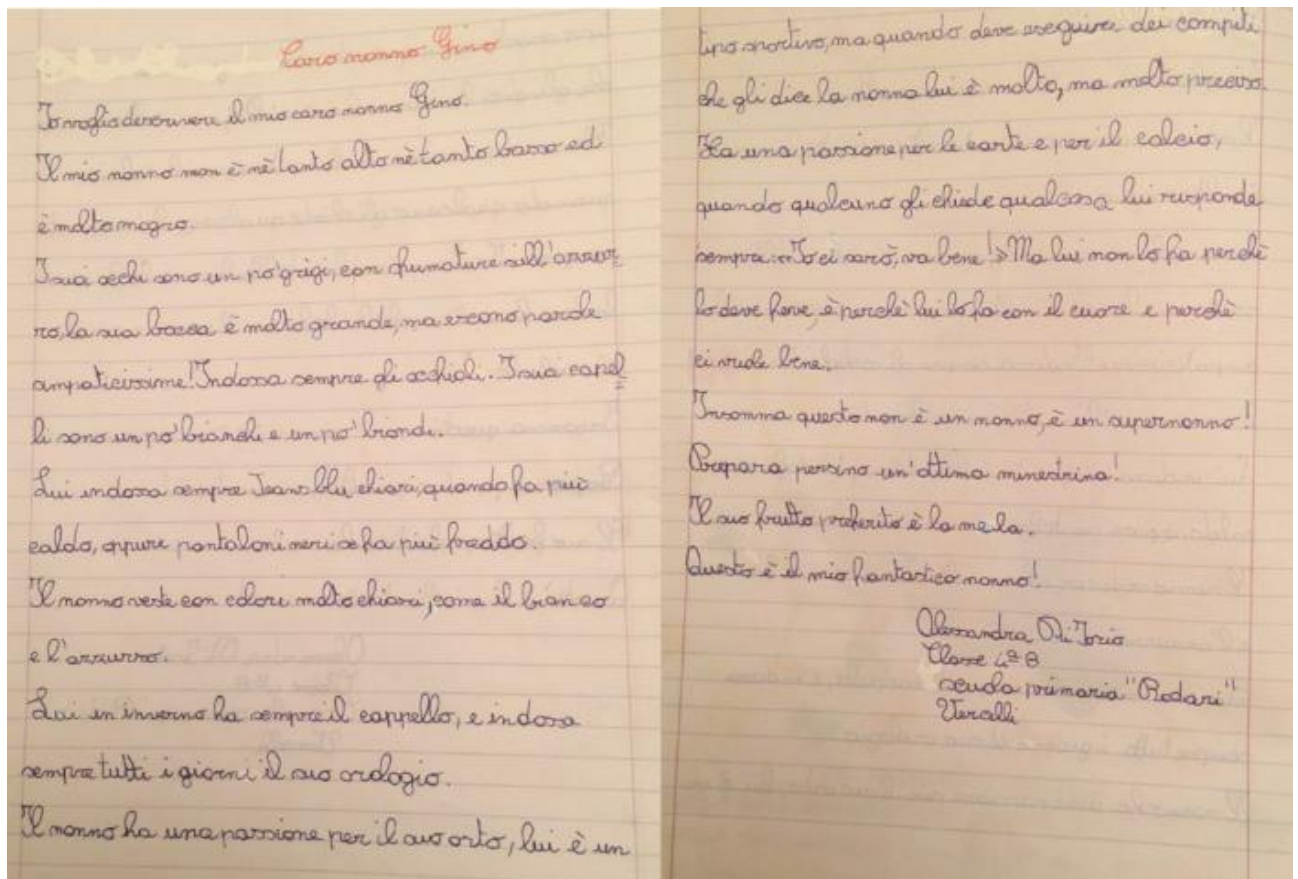 Caro nonno Gino
Io voglio descrivere il mio caro nonno Gino.
Il mio nonno non è nè tanto alto nè tanto basso ed
è molto magro.
I suoi occhi sono un po' grigi, con sfumature sull'azzur
ro, la sua bocca è molto grande, ma escono parole
simpaticissime! Indossa sempre gli occhiali. I suoi capel
li sono un po' bianchi e un po' biondi.
Lui indossa sempre Jeans blu chiari, quando fa più
caldo, oppure pantaloni neri se fa più freddo.
Il nonno veste con colori molto chiari, come il bianco
e l'azzurro.
Lui in inverno ha sempre il cappello, e indossa
sempre tutti i giorni il suo orologio.
Il nonno ha una passione per il suo orto, lui è un
tipo sportivo, ma quando deve eseguire dei compiti
che gli dice la nonna lui è molto, ma molto preciso.
Ha una passione per le carte e per il calcio,
quando qualcuno gli chiede qualcosa lui risponde
sempre: «Io ci sarò, va bene!» Ma lui non lo fa perchè
lo deve fare, è perchè lui lo fa con il cuore e perchè
ci vuole bene.
Insomma questo non è un nonno, è un supernonno!
Prepara persino un'ottima minestrina!
Il suo frutto preferito è la mela.
Questo è il mio fantastico nonno!
Alessandra Di Iorio
Classe 4ª B
scuola primaria "Rodari"